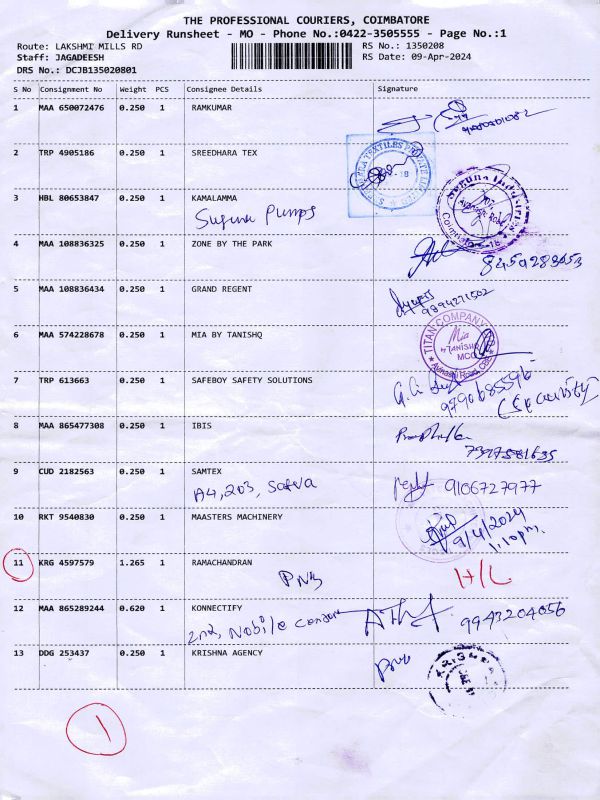 THE PROFESSIONAL COURIERS, COIMBATORE
Delivery Runsheet - MO - Phone No.:0422-3505555 - Page No.:1
Route: LAKSHMI MILLS RD RS No.: 1350208
Staff: JAGADEESH RS Date: 09-Apr-2024
DRS No.: DCJB135020801
S No Consignment No Weight PCS Consignee Details Signature
1 MAA 650072476 0.250 1 RAMKUMAR
2 TRP 4905186 0.250 1 SREEDHARA TEX
3 HBL 80653847 0.250 1 KAMALAMMA
Suguna Pumps
4 MAA 108836325 0.250 1 ZONE BY THE PARK
8459283053
5 MAA 108836434 0.250 1 GRAND REGENT
9894271502
6 MAA 574228678 0.250 1 MIA BY TANISHQ
TITAN COMPANY
Mia
by TANISHQ
MCC
Avinashi Road, CBE
7 TRP 613663 0.250 1 SAFEBOY SAFETY SOLUTIONS
9790685596
(Security)
8 MAA 865477308 0.250 1 IBIS
7397581635
9 CUD 2182563 0.250 1 SAMTEX
A4, 203, Satva 9106727977
10 RKT 9540830 0.250 1 MAASTERS MACHINERY
9/4/2024
1.10pm.
11 KRG 4597579 1.265 1 RAMACHANDRAN
PNB H/L
12 MAA 865289244 0.620 1 KONNECTIFY
2nd, Nobile 9943204056
13 DDG 253437 0.250 1 KRISHNA AGENCY
1